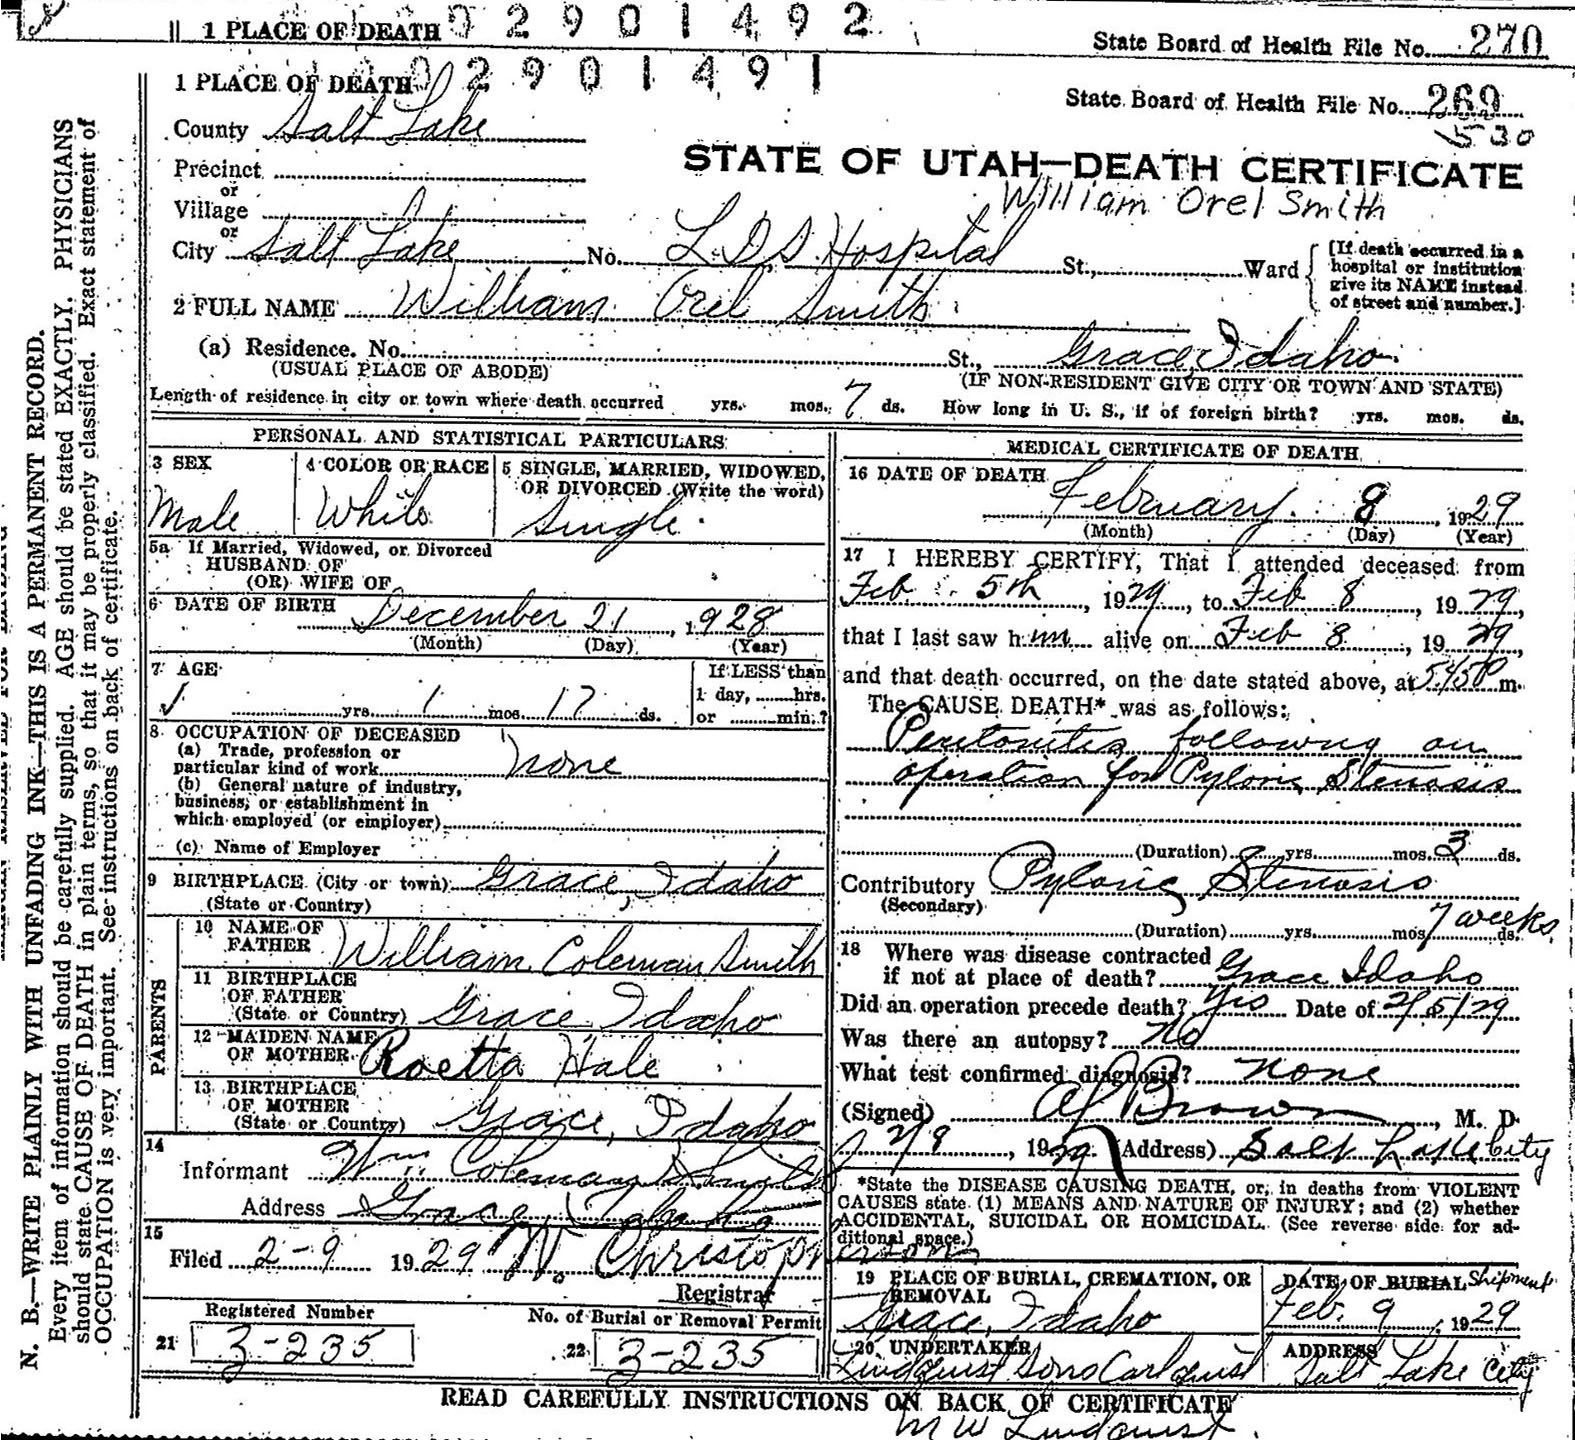 02901492
1 PLACE OF DEATH
State Board of Health File No. 270
02901491
1 PLACE OF DEATH
State Board of Health File No. 269
530
County Salt Lake
STATE OF UTAH—DEATH CERTIFICATE
Precinct
or
William Orel Smith
Village
or
City Salt Lake No. L.D.S Hospital St., Ward
[If death occurred in a
hospital or institution
give its NAME instead
of street and number.]
2 FULL NAME William Orel Smith
(a) Residence. No. St., Grace, Idaho.
(USUAL PLACE OF ABODE) (IF NON-RESIDENT GIVE CITY OR TOWN AND STATE)
Length of residence in city or town where death occurred yrs. mos. 7 ds. How long in U. S., if of foreign birth? yrs. mos. ds.
PERSONAL AND STATISTICAL PARTICULARS
3 SEX
Male
4 COLOR OR RACE
White
5 SINGLE, MARRIED, WIDOWED,
OR DIVORCED (Write the word)
Single.
5a If Married, Widowed, or Divorced
HUSBAND OF
(OR) WIFE OF
6 DATE OF BIRTH December 21, 1928
(Month) (Day) (Year)
7 AGE
yrs. 1 mos. 17 ds.
If LESS than
1 day, hrs.
or min.?
8 OCCUPATION OF DECEASED
(a) Trade, profession or
particular kind of work none
(b) General nature of industry,
business, or establishment in
which employed (or employer)
(c) Name of Employer
9 BIRTHPLACE (City or town) Grace, Idaho
(State or Country)
PARENTS
10 NAME OF
FATHER William Coleman Smith
11 BIRTHPLACE
OF FATHER
(State or Country) Grace Idaho
12 MAIDEN NAME
OF MOTHER Roetta Hale
13 BIRTHPLACE
OF MOTHER
(State or Country) Grace, Idaho
14
Informant Wm Coleman Smith
Address Grace, Idaho
15
Filed 2-9 1929 W. Christopherson
Registrar
Registered Number
21 3-235
No. of Burial or Removal Permit
22 3-235
MEDICAL CERTIFICATE OF DEATH
16 DATE OF DEATH
February. 8, 1929
(Month) (Day) (Year)
17 I HEREBY CERTIFY, That I attended deceased from
Feb 5th, 1929, to Feb 8, 1929,
that I last saw him alive on Feb 8, 1929
and that death occurred, on the date stated above, at 5:45P m.
The CAUSE DEATH* was as follows:
Peritonitis following an
operation for Pyloric Stenosis
(Duration) yrs. mos. 3 ds.
Contributory Pyloric Stenosis
(Secondary)
(Duration) yrs. mos. 7 weeks ds.
18 Where was disease contracted
if not at place of death? Grace Idaho
Did an operation precede death? Yes Date of 2/5/29
Was there an autopsy? No
What test confirmed diagnosis? None
(Signed) Brown, M. D
2/9, 1929 (Address) Salt Lake City
*State the DISEASE CAUSING DEATH, or, in deaths from VIOLENT
CAUSES state (1) MEANS AND NATURE OF INJURY; and (2) whether
ACCIDENTAL, SUICIDAL OR HOMICIDAL. (See reverse side for ad-
ditional space.)
19 PLACE OF BURIAL, CREMATION, OR
REMOVAL
Grace, Idaho
DATE OF BURIAL Shipment
Feb. 9, 1929
20 UNDERTAKER
Lindquist Sons Carlquist
ADDRESS
Salt Lake City
READ CAREFULLY INSTRUCTIONS ON BACK OF CERTIFICATE
M W Lindquist.
N. B.—WRITE PLAINLY WITH UNFADING INK—THIS IS A PERMANENT RECORD.
Every item of information should be carefully supplied. AGE should be stated EXACTLY. PHYSICIANS
should state CAUSE OF DEATH in plain terms, so that it may be properly classified. Exact statement of
OCCUPATION is very important. See instructions on back of certificate.